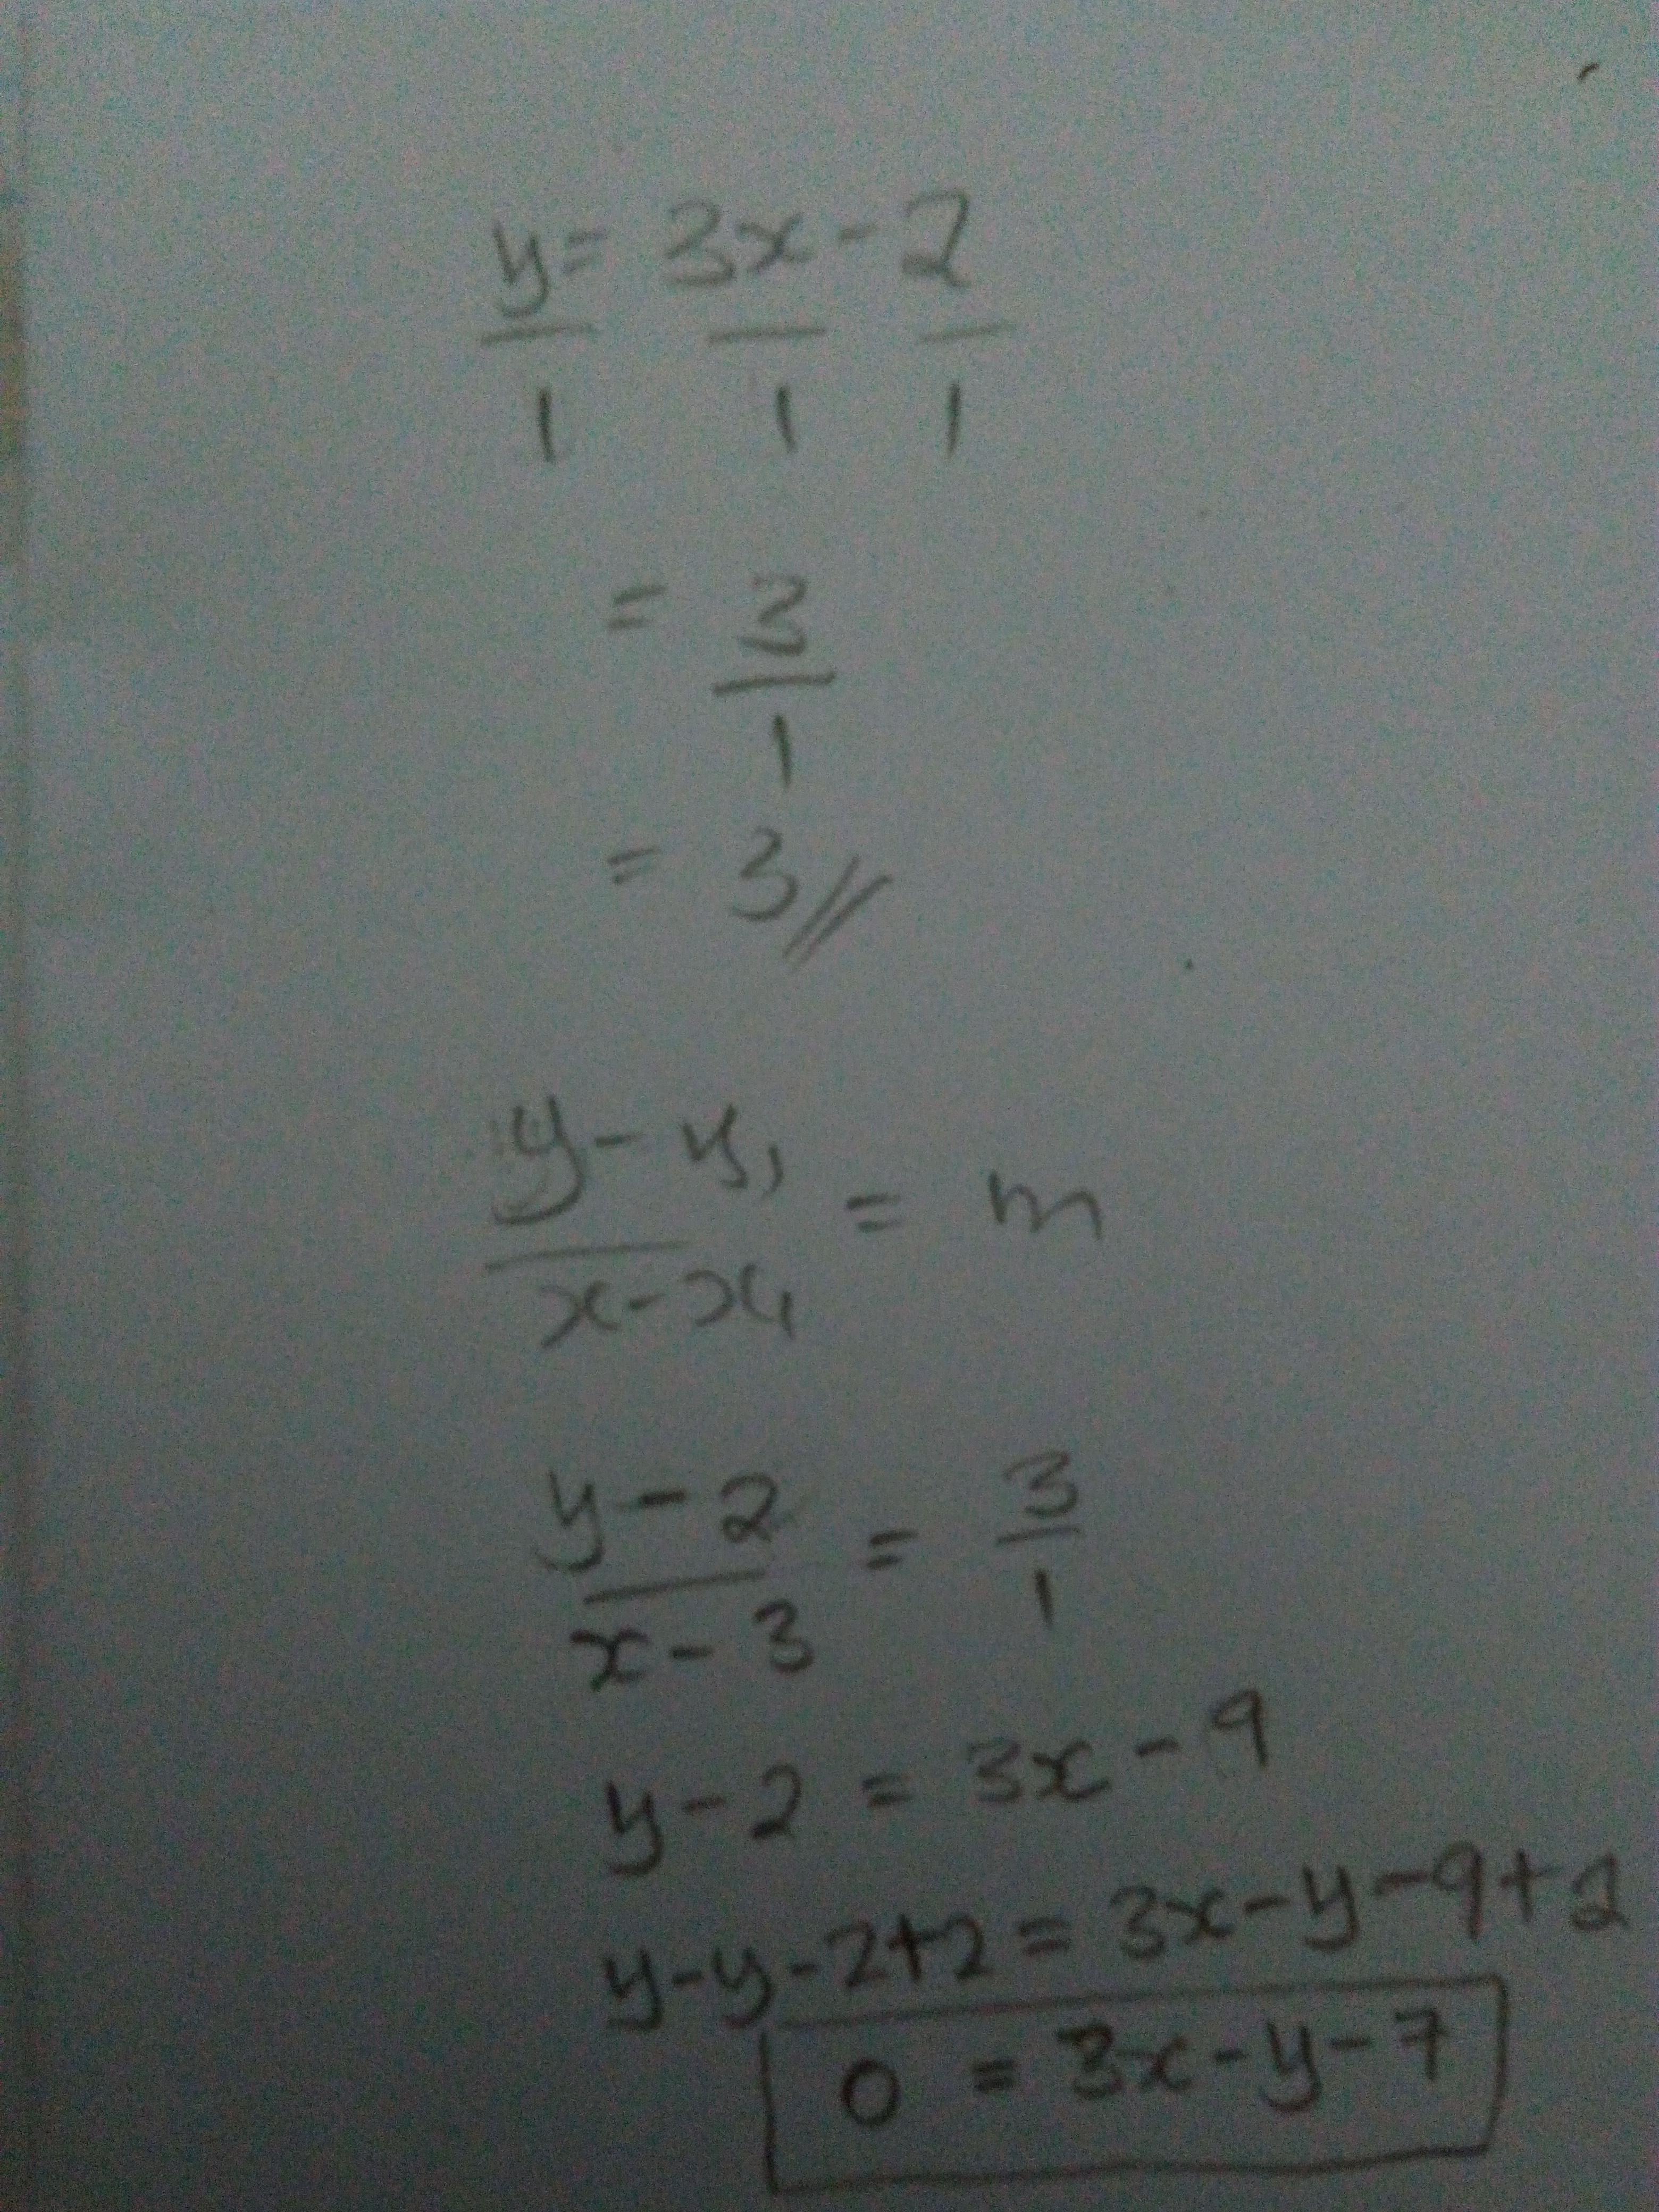 y = 3x - 2
1 1 1
= 3
1
= 3//
y - y₁
x - x₁ = m
y - 2 = 3
x - 3 1
y - 2 = 3x - 9
y - y - 2 + 2 = 3x - y - 9 + 2
0 = 3x - y - 7